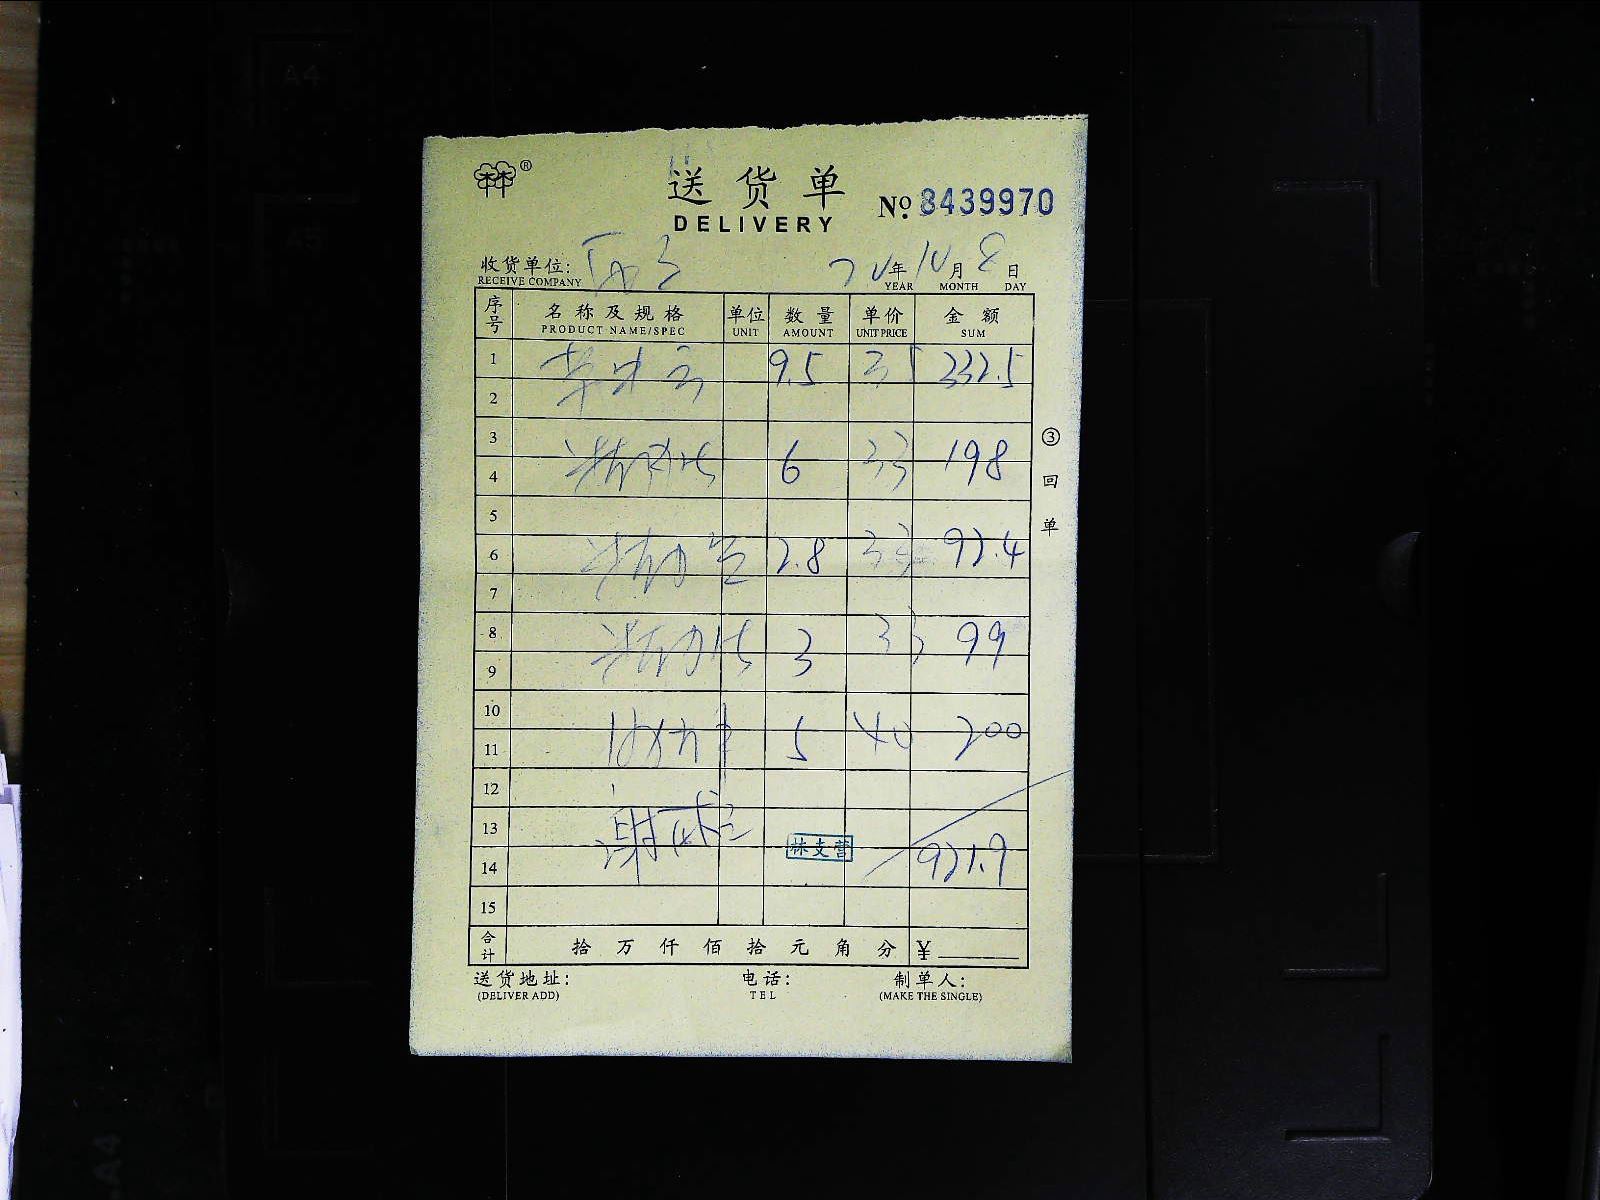 送货单
DELIVERY
No 8439970
收货单位:
RECEIVE COMPANY
年 10 月 8 日
YEAR MONTH DAY
序号 名称及规格 单位 数量 单价 金额
PRODUCT NAME/SPEC UNIT AMOUNT UNIT PRICE SUM
1 9.5 35 332.5
2
3
4 6 33 198
5
6 2.8 33 92.4
7
8 3 33 99
9
10
11 5 40 200
12
13 谢
林支营
14 921.9
15
合计 拾 万 仟 佰 拾 元 角 分 ¥
③回单
送货地址: 电话: 制单人:
(DELIVER ADD) TEL (MAKE THE SINGLE)
A4
A5
A4